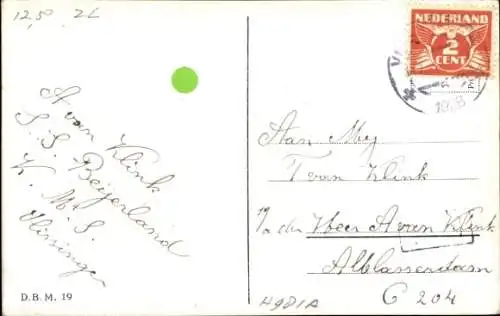 12,50 2L
NEDERLAND
2
CENT
1928
A van Klink
S.S. Beijerland
K. M. S.
Vlissingen
Aan Mej
T van Klink
p/a den Heer A van Klink
Alblasserdam
C 204
D.B.M. 19
4981A